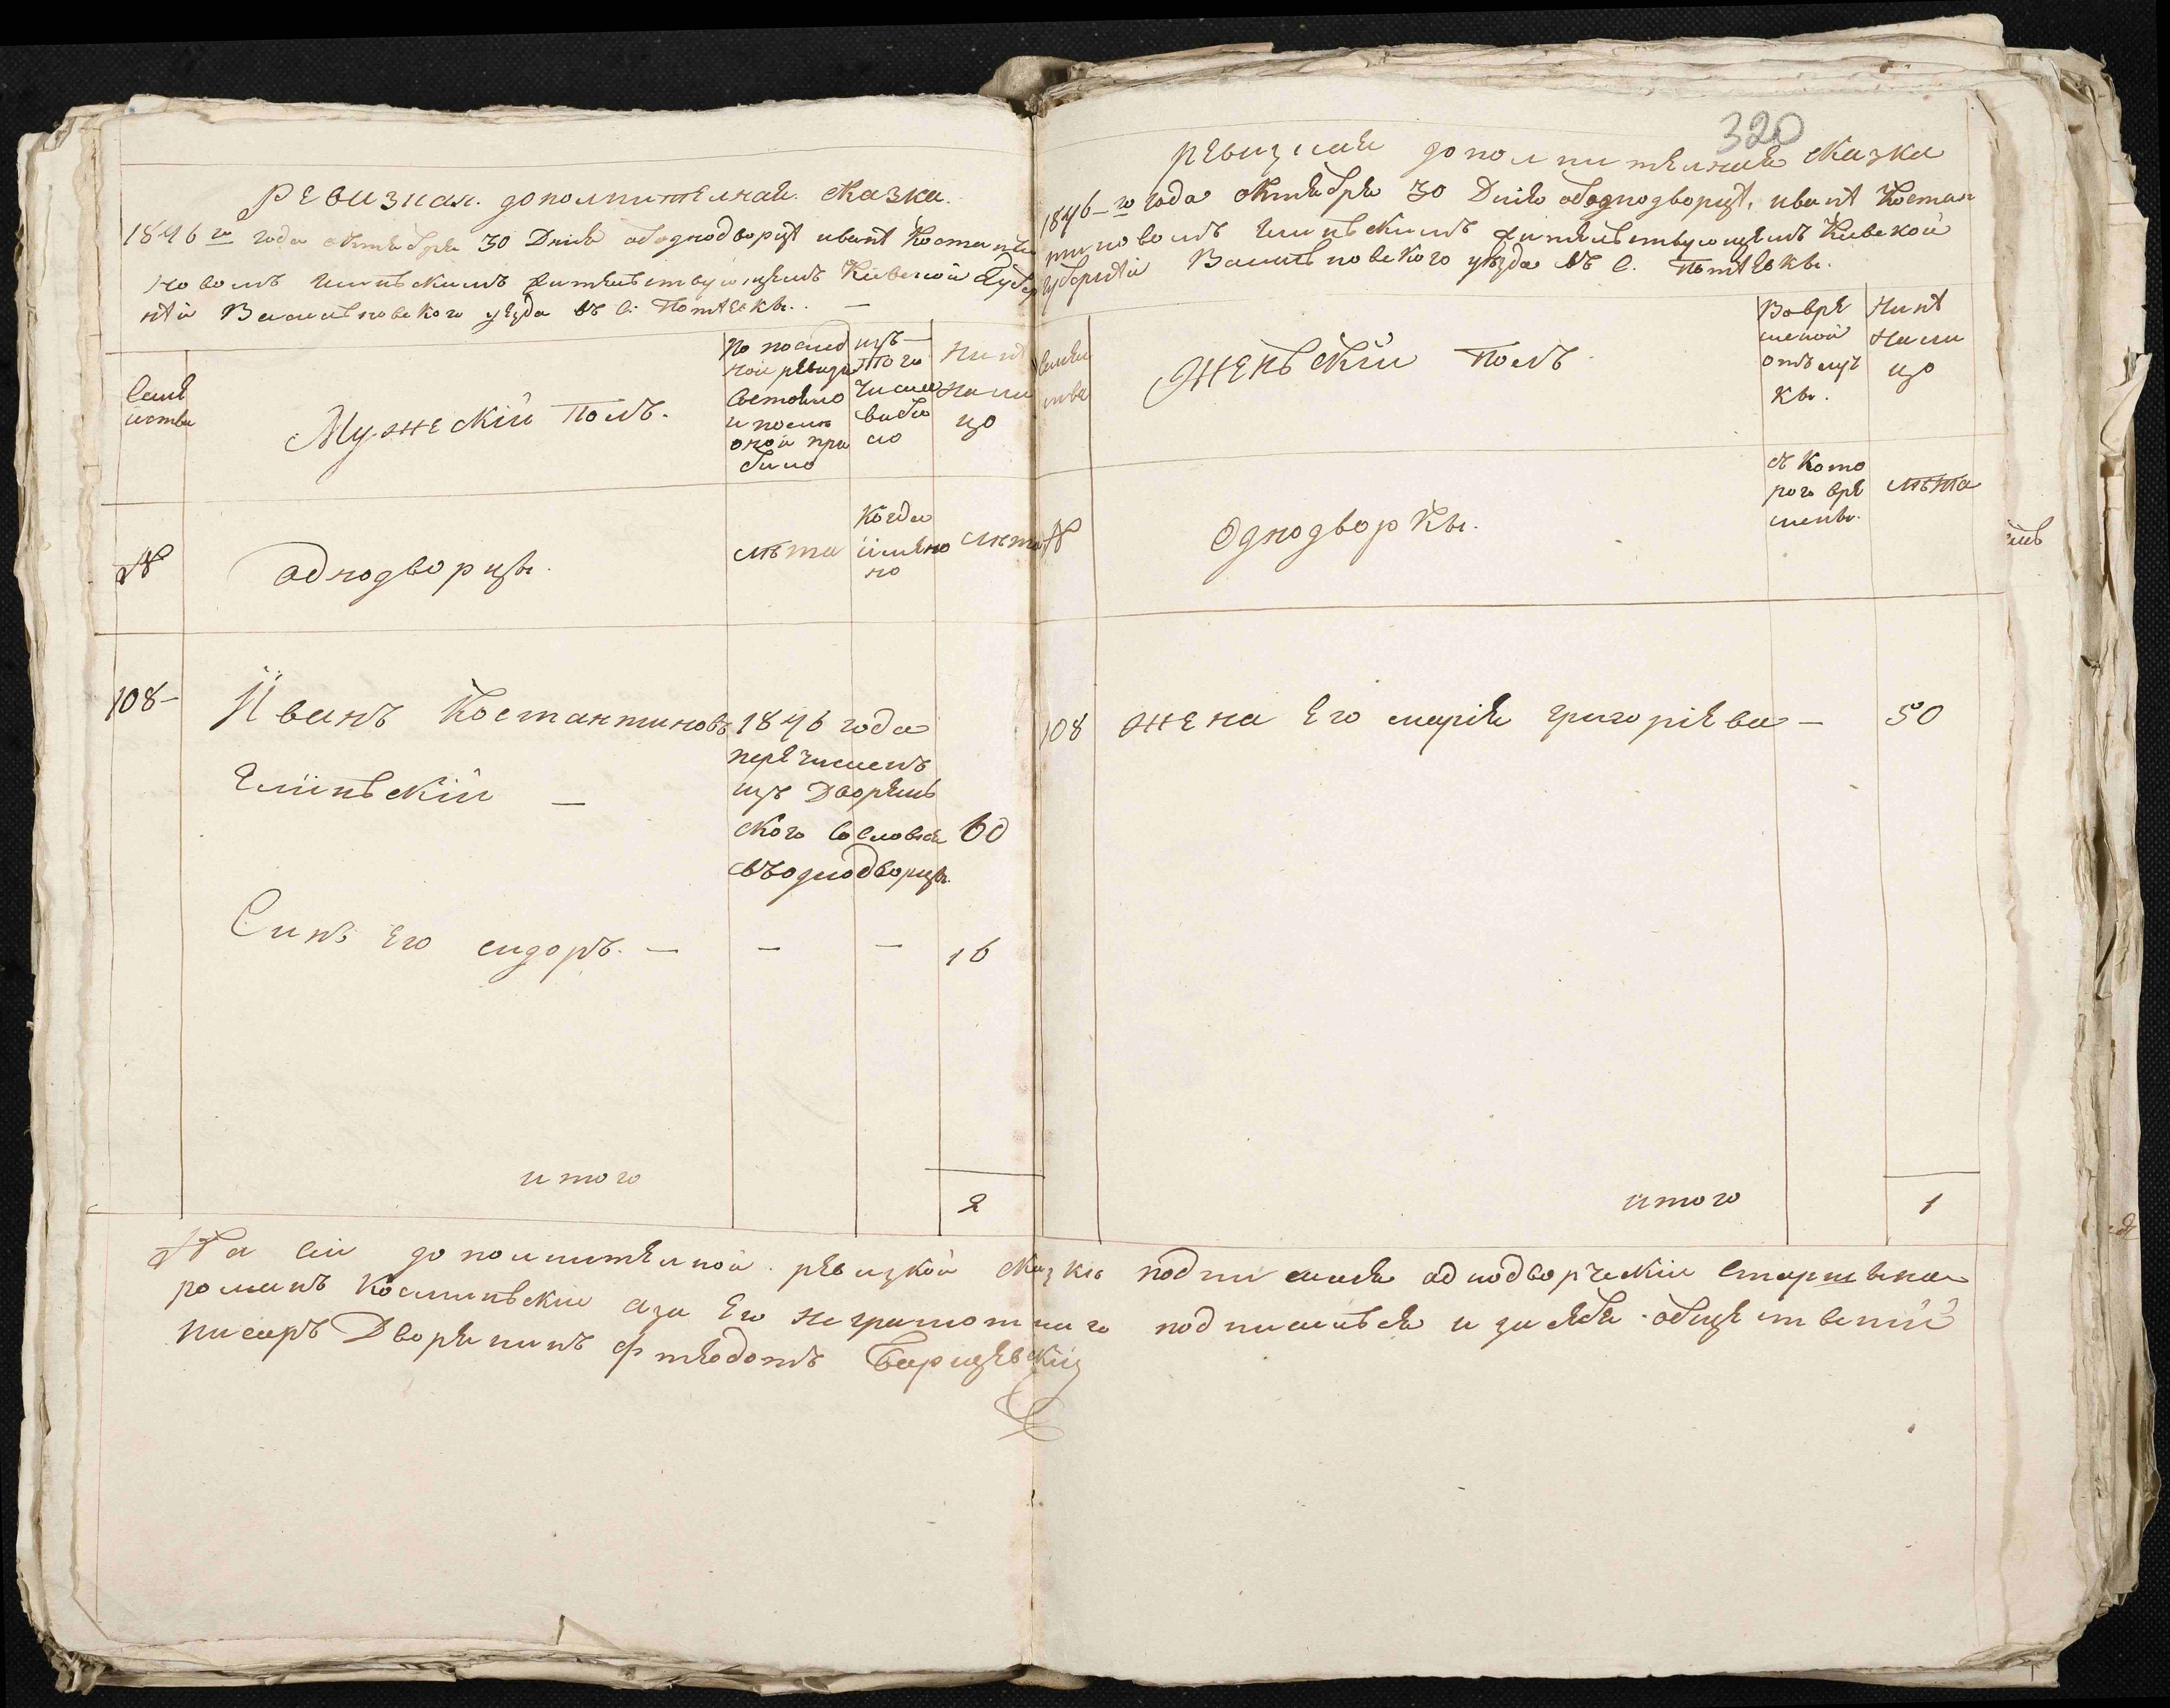 Ревизная дополнителная сказка
1846 го года октября 30 дния ободнодворцѣ иванѣ Костанти
новомъ жителствующемъ Киевской Губер
нѣи Василковского уезда въ с. Потѣевки.
Семе
йства
Мужескій Полъ.
По послед
ной ревизи
состояло
и после
оной при
било
изъ
того
числа
вибы
ло
Нинѣ
на ли
цо
№
однодворцы.
лѣта
Когда
имѣно
но
лѣта
108
Иванъ Костантиновъ
Елинскій
1846 года
перечислень
изъ дворянь
ского сословия
въ однодворцы.
60
Синъ его сидоръ. — — — 16
итого
2
320
ревизная дополнителная сказка
1846-го года октября 30 дния ободнодворцѣ, иванѣ Костан
тиновомъ жителствующемъ Киевской
губернѣи Василковского уезда въ с. Потѣевки.
Семей
ства
Женьскій полъ
Вовре
меной
отълуч
ки.
Нинѣ
на ли
цо
№
Однодворки.
съ кото
рого вре
мени.
лѣта
108
жена его марія григоріева — 50
итого
1
На сій дополнителной ревизкой сказкѣ подписался однодворческій старшина
романъ а за его неграмотнаго подписался и за себя общественій
писаръ Дворянинъ